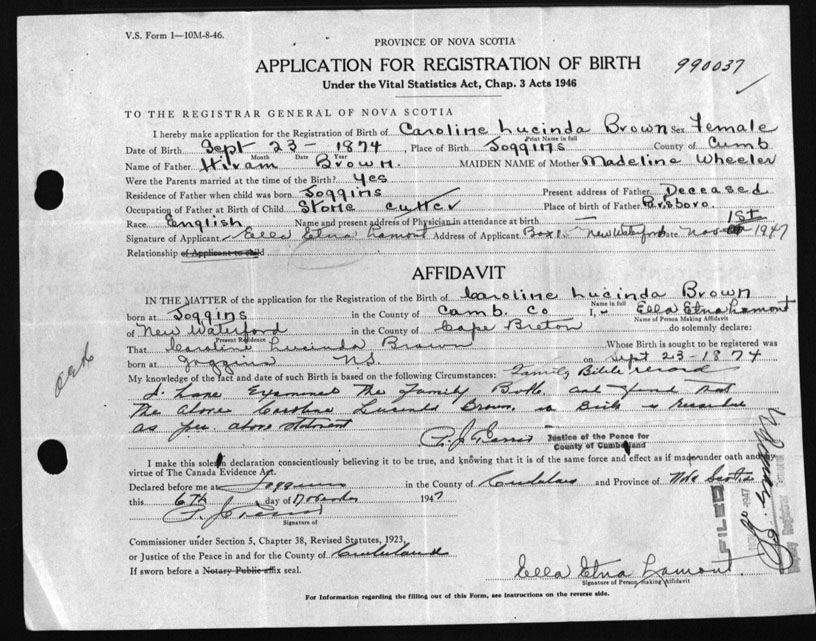 V.S. Form 1—10M-8-46.
PROVINCE OF NOVA SCOTIA
APPLICATION FOR REGISTRATION OF BIRTH
990037
Under the Vital Statistics Act, Chap. 3 Acts 1946
TO THE REGISTRAR GENERAL OF NOVA SCOTIA
I hereby make application for the Registration of Birth of Caroline Lucinda Brown Sex Female
Print Name in full
Date of Birth Sept 23 - 1874, Place of Birth Joggins County of Cumb
Month Date Year
Name of Father Hiram Brown. MAIDEN NAME of Mother Madelina Wheeler
Were the Parents married at the time of the Birth? Yes
Residence of Father when child was born Joggins Present address of Father Deceased
Occupation of Father at Birth of Child Stone cutter Place of birth of Father Parsboro.
Race English Name and present address of Physician in attendance at birth — 1st
Signature of Applicant Ella Etna Lamont Address of Applicant Box New Waterford Date Nov 1947
Relationship of Applicant to child
AFFIDAVIT
IN THE MATTER of the application for the Registration of the Birth of Caroline Lucinda Brown
Name in full
born at Joggins in the County of Camb. Co I, Ella Etna Lamont
Name of Person Making Affidavit
of New Waterford in the County of Cape Breton do solemnly declare:
Present Residence
That Caroline Lucinda Brown Whose Birth is sought to be registered was
born at Joggins N.S. on Sept 23-1874
My knowledge of the fact and date of such Birth is based on the following Circumstances: Family Bible record
I have Examined The Family Bible and found that
The Above Caroline Lucinda Brown, Birth is recorded
as per above statement
Justice of the Peace for
County of Cumberland
I make this solemn declaration conscientiously believing it to be true, and knowing that it is of the same force and effect as if made under oath and by
virtue of The Canada Evidence Act.
Declared before me at Joggins in the County of Cumberland and Province of Nova Scotia
this 6th day of November 1947
Signature of
FILED
1947
Commissioner under Section 5, Chapter 38, Revised Statutes, 1923,
or Justice of the Peace in and for the County of Cumberland
If sworn before a Notary Public affix seal.
Ella Etna Lamont
Signature of Person making Affidavit
For Information regarding the filling out of this Form, see Instructions on the reverse side.